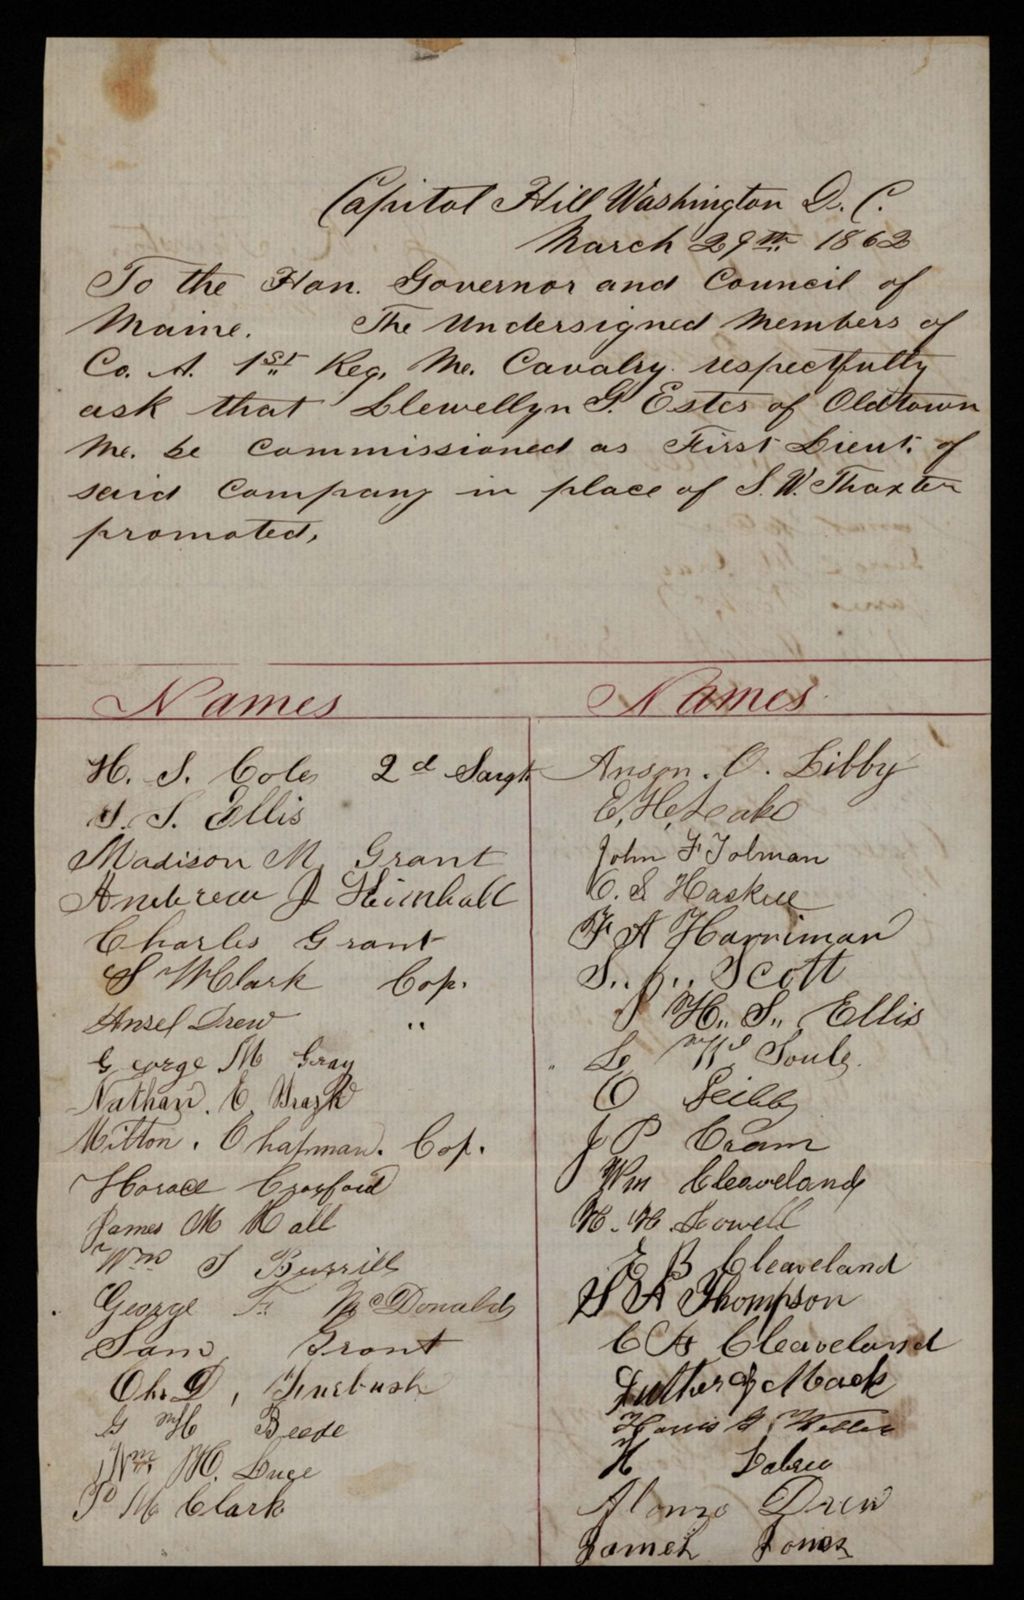 Capitol Hill Washington D. C.
March 29th 1862
To the Hon. Governor and Council of
Maine. The Undersigned Members of
Co. A. 1st Reg. Me. Cavalry respectfully
ask that Llewellyn G. Estes of Oldtown
Me. be Commissioned as First Lieut. of
said Company in place of S. W. Thaxter
promoted.
Names
Names
H. S. Cole 2d Sargt
S. S. Ellis
Madison M. Grant
Andrew J Kimball
Charles Grant
S W Clark Cop.
Ansel Drew "
George M Gray
Nathan. E.
Milton. Chapman. Cop.
Horace Croxford
James M Hall
Wm S Burrill
George F. McDonald
Sam Grant
Chs D, Furbush
G W Beede
Wm H. Luce
P M Clark
Anson. O. Libby
E, H, Leake
John F Tolman
C. S Haskell
F A Harriman
S. Scott
J H. S. Ellis
Soule
O Leibby
J P Cram
Wm Cleaveland
H. H. Lowell
E B Cleaveland
S A Thompson
C A Cleaveland
Luther G Mack
Harris
H
Alonzo Drew
James Jones